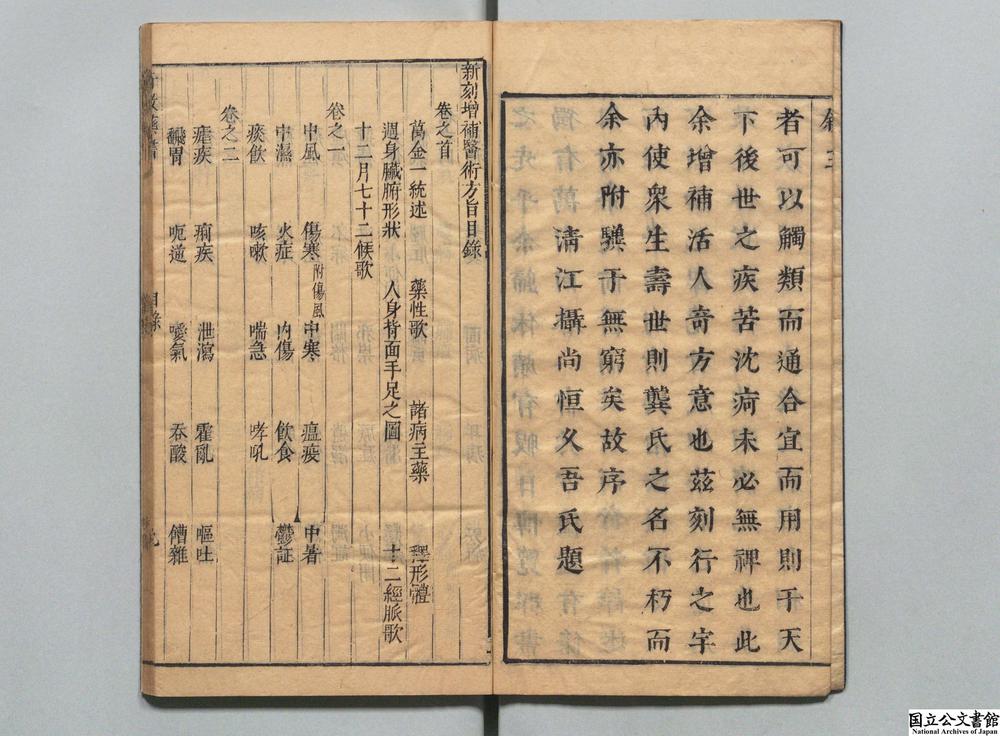 者可以觸類而通合宜而用則于天
下後世之疾苦沈疴未必無裨也此
余增補活人奇方意也茲刻行之宇
內使衆生壽世則龔氏之名不朽而
余亦附驥于無窮矣故序
清江攝尚恒久吾氏題
新刻增補醫術方旨目錄
卷之首
萬金一統述 藥性歌 諸病主藥 釋形體
週身臟腑形狀 人身背面手足之圖 十二經脈歌
十二月七十二候歌
卷之一
中風 傷寒附傷風 中寒 瘟疫 中暑
中濕 火症 內傷 飲食 鬱証
痰飲 咳嗽 喘急 哮吼
卷之二
瘧疾 痢疾 泄瀉 霍亂 嘔吐
翻胃 呃逆 噯氣 吞酸 嘈雜
目錄
国立公文書館
National Archives of Japan